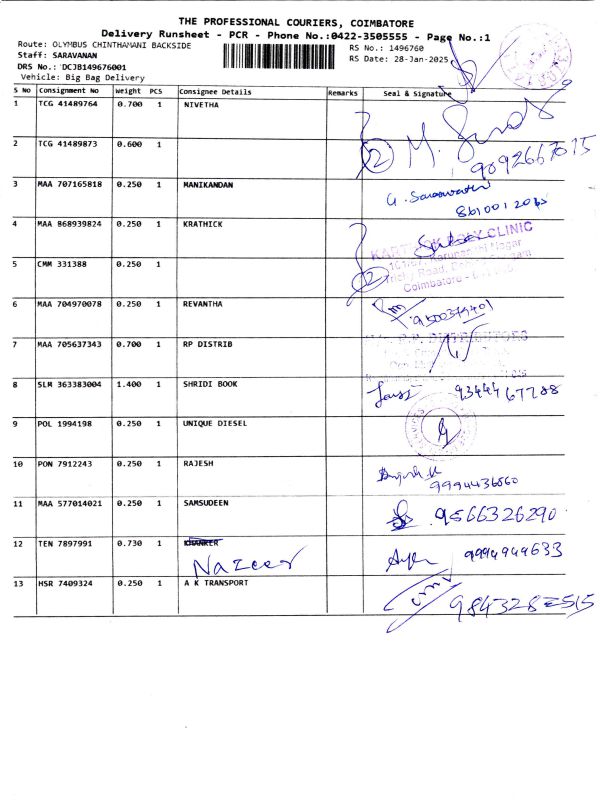 THE PROFESSIONAL COURIERS, COIMBATORE
Delivery Runsheet - PCR - Phone No.:0422-3505555 - Page No.:1
Route: OLYMBUS CHINTHAMANI BACKSIDE
RS No.: 1496760
Staff: SARAVANAN
RS Date: 28-Jan-2025
DRS No.: DCJB149676001
Vehicle: Big Bag Delivery
S No Consignment No Weight PCS Consignee Details Remarks Seal & Signature
1 TCG 41489764 0.700 1 NIVETHA
2 TCG 41489873 0.600 1 2 9092667015
3 MAA 707165818 0.250 1 MANIKANDAN G. Saraswathi
4 MAA 868939824 0.250 1 KRATHICK CLINIC
5 CMM 331388 0.250 1 2 Coimbatore
6 MAA 704970078 0.250 1 REVANTHA
7 MAA 705637343 0.700 1 RP DISTRIB
8 SLM 363383004 1.400 1 SHRIDI BOOK 9344467788
9 POL 1994198 0.250 1 UNIQUE DIESEL
10 PON 7912243 0.250 1 RAJESH 9994436560
11 MAA 577014021 0.250 1 SAMSUDEEN 9566326290
12 TEN 7897991 0.730 1 KHANKER Nazeer 9994949633
13 HSR 7409324 0.250 1 A K TRANSPORT